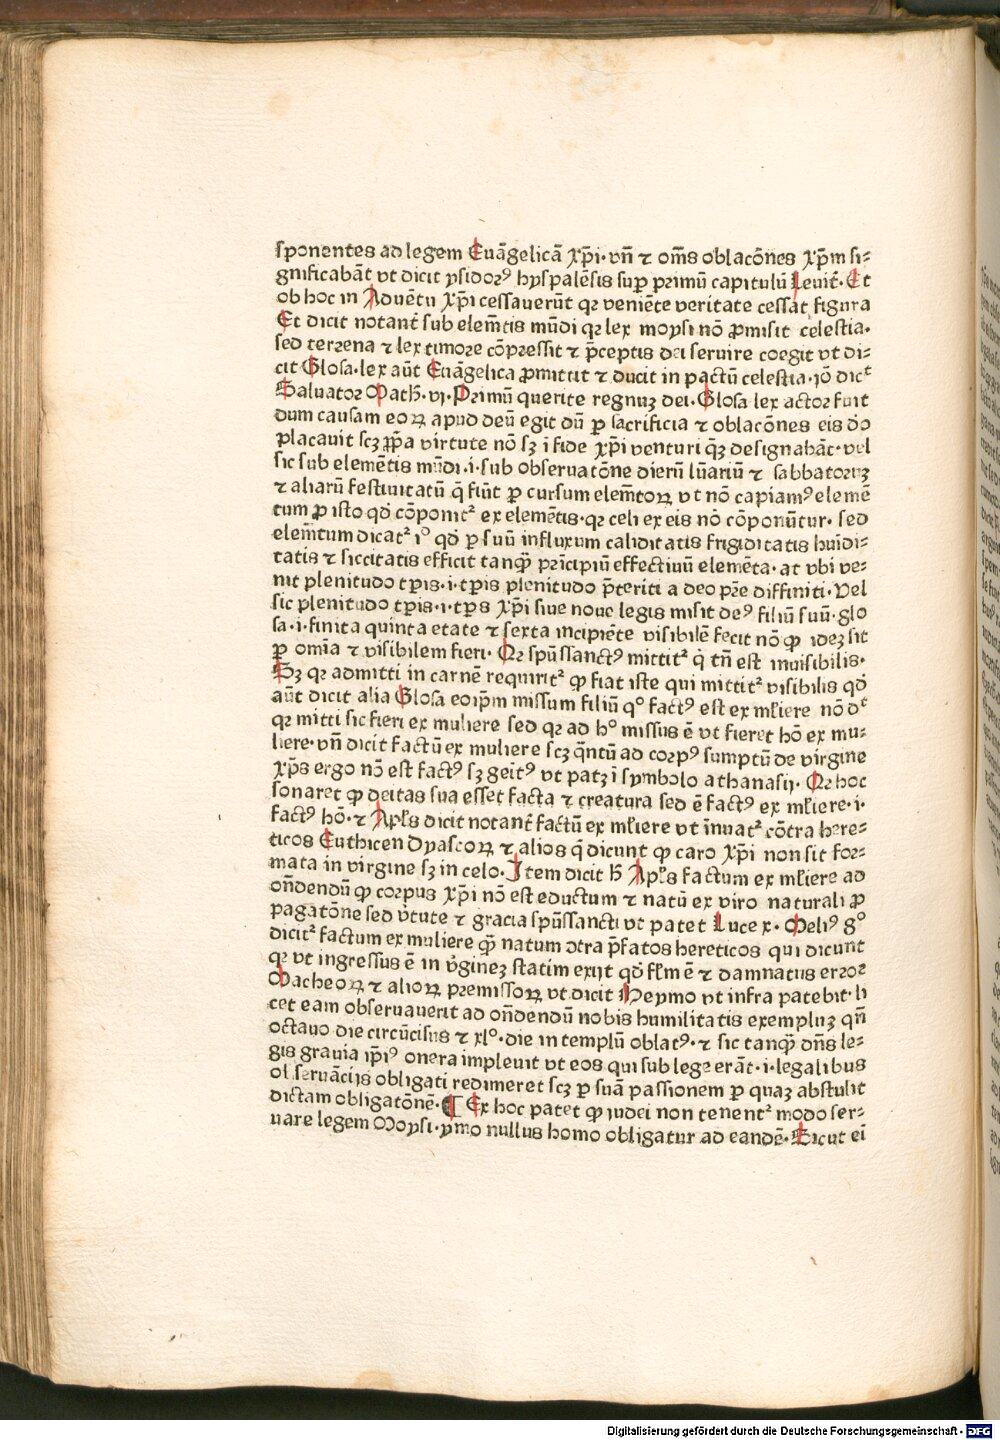 sponentes ad legem Euãgelicã Xp̃i·vñ ⁊ om̃s oblacõnes Xp̃m si⸗
gnificabãt vt dicit ysidorꝰ hyspalẽsis suꝑ primũ capitulũ Leuit̃· Et
ob hoc in Aduẽtu Xp̃i cessauerũt qꝛ veniẽte veritate cessat figura
Et dicit notant̃ sub elem̃tis mũdi qꝛ lex moysi nõ ꝓmisit celestia·
sed terrena ⁊ lex timore cõpressit ⁊ p̃ceptis dei seruire coegit vt di⸗
cit Glosa·lex aũt Euãgelica ꝓmittit ⁊ ducit in pactũ celestia·iõ dicᵗ
Saluator Math̃·vj·Primũ querite regnuꝫ dei·Glosa lex actor fuit
dum causam eoꝝ apud deũ egit dũ ꝑ sacrificia ⁊ oblacõnes eis dõ
placauit scꝫ ꝓp̃a virtute nõ sꝫ ĩ fide Xp̃i venturi q̃ꝫ designabãt·vel
sic sub elemẽtis mũdi·i·sub obseruatõne dierũ lũariũ ⁊ sabbatoruꝫ
⁊ aliarũ festiuitatũ q̃ fiũt ꝑ cursum elem̃toꝝ vt nõ capiamꝰ elemẽ
tum ꝓ isto qd̃ cõponitᷣ ex elemẽtis·qꝛ celi ex eis nõ cõponũtur· sed
elem̃tum dicatᷣ iº qd̃ ꝑ suũ influxum caliditatis frigiditatis hũidi⸗
tatis ⁊ siccitatis efficit tanqꝫ̃ prĩcipiũ effectiuũ elemẽta·at vbi ve⸗
nit plenitudo tp̃is·i·tp̃is plenitudo p̃teriti a deo pr̃e diffiniti·Vel
sic plenitudo tp̃is·i·tp̃s Xp̃i siue noue legis misit deꝰ filiũ suũ·glo
sa·i·finita quinta etate ⁊ sexta incipiẽte visibilẽ fecit nõ ꝙ ideꝫ sit
ꝑ omĩa ⁊ visibilem fieri· Qꝛ spũssanctꝰ mittitᷣ q̇ tñ est inuisibilis·
Sꝫ qꝛ admitti in carnẽ requiritᷣ ꝙ fiat iste qui mittitᷣ visibilis qd̃
aũt dicit alia Glosa eoip̃m missum filiũ qº factꝰ est ex mĺiere nõ dᵗ
qꝛ mitti sic fieri ex muliere sed qꝛ ad hº missus ẽ vt fieret hõ ex mu⸗
liere·vñ dicit factũ ex muliere scꝫ q̃ntũ ad corpꝰ sumptũ de virgine
Xp̃s ergo nõ est factꝰ sꝫ geĩtꝰ vt patꝫ ĩ symbolo athanasij· Qꝛ hoc
sonaret ꝙ deitas sua esset facta ⁊ creatura sed ẽ factꝰ ex mĺiere·i·
factꝰ hõ·⁊ Apĺs dicit notant̃ factũ ex mĺiere vt ĩnuatᷣ cõtra here⸗
ticos Euthicen Dyascoꝝ ⁊ alios q̃ dicunt ꝙ caro Xp̃i non sit for⸗
mata in virgine sꝫ in celo·Item dicit h̃ Apĺs factum ex mĺiere ad
oñdendũ ꝙ corpus Xp̃i nõ est eductum ⁊ natũ ex viro naturali ꝓ
pagatõne sed v̾tute ⁊ gracia spũssancti vt patet Luce x· Meliꝰ gº
dicitᷣ factum ex muliere qꝫ̃ natum ↄtra p̃fatos hereticos qui dicunt
qꝛ vt ingressus ẽ in v̾gineꝫ statim exijt qd̃ fĺm ẽ ⁊ damnatus error
Macheoꝝ ⁊ alioꝝ premissoꝝ vt dicit Heymo vt infra patebit·li
cet eam obseruauerit ad oñdendũ nobis humilitatis exempluꝫ qñ
octauo die circũcisus ⁊ xlº·die in templũ oblatꝰ·⁊ sic tanqꝫ̃ dñs le⸗
gis grauia ip̃iꝰ onera impleuit vt eos qui sub lege erãt·i·legalibus
obseruãcijs obligati redimeret scꝫ ꝑ suã passionem ꝑ quaꝫ abstulit
dictam obligatõnẽ·¶ Ex hoc patet ꝙ iudei non tenentᷣ modo ser⸗
uare legem Moysi·ymo nullus homo obligatur ad eandẽ·Sicut ei̅
Digitalisierung gefördert durch die Deutsche Forschungsgemeinschaft - DFG